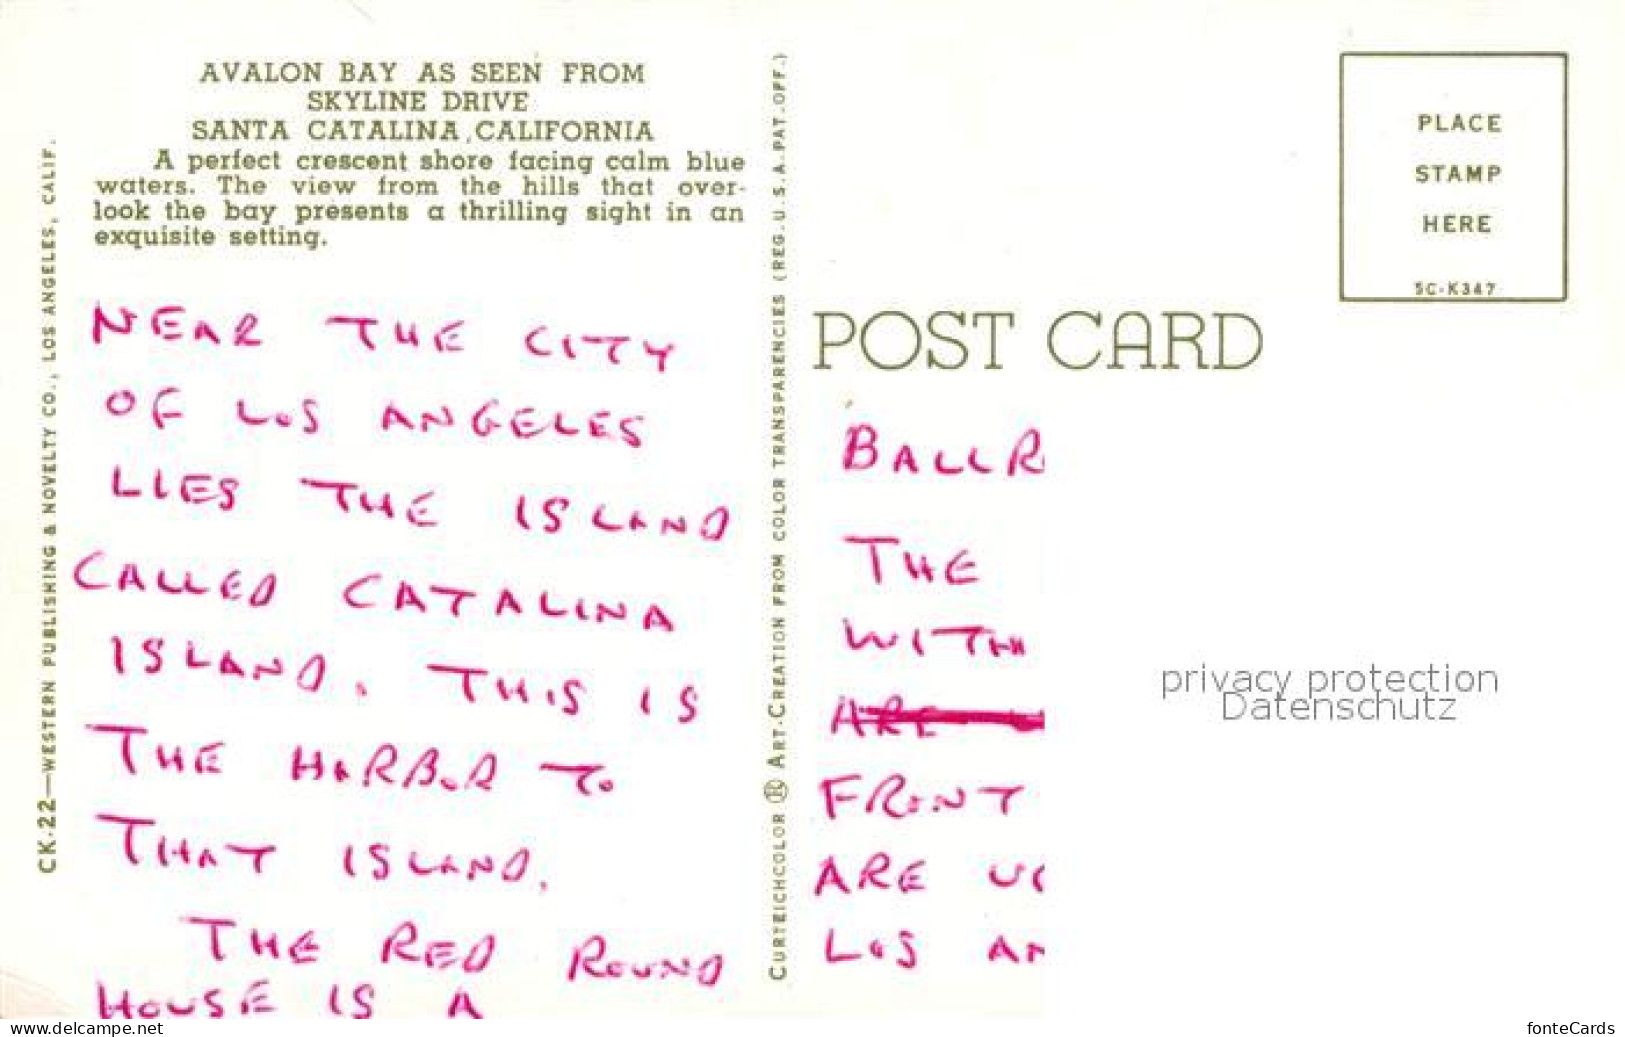 AVALON BAY AS SEEN FROM
SKYLINE DRIVE
SANTA CATALINA, CALIFORNIA
A perfect crescent shore facing calm blue
waters. The view from the hills that over-
look the bay presents a thrilling sight in an
exquisite setting.
NEAR THE CITY
OF LOS ANGELES
LIES THE ISLAND
CALLED CATALINA
ISLAND. THIS IS
THE HARBOR TO
THAT ISLAND.
THE RED ROUND
HOUSE IS A
CK-22—WESTERN PUBLISHING & NOVELTY CO., LOS ANGELES, CALIF.
CURTEICHCOLOR ® ART-CREATION FROM COLOR TRANSPARENCIES (REG. U.S.A. PAT. OFF.)
PLACE
STAMP
HERE
5C-K347
POST CARD
BALLR
THE
WITH
ARE
FRONT
ARE
LOS AN
privacy protection
Datenschutz
www.delcampe.net
fonteCards